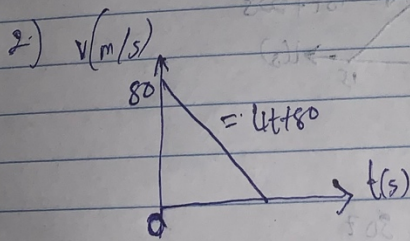 2.) v(m/s)
80
= 4t+80
t(s)
0